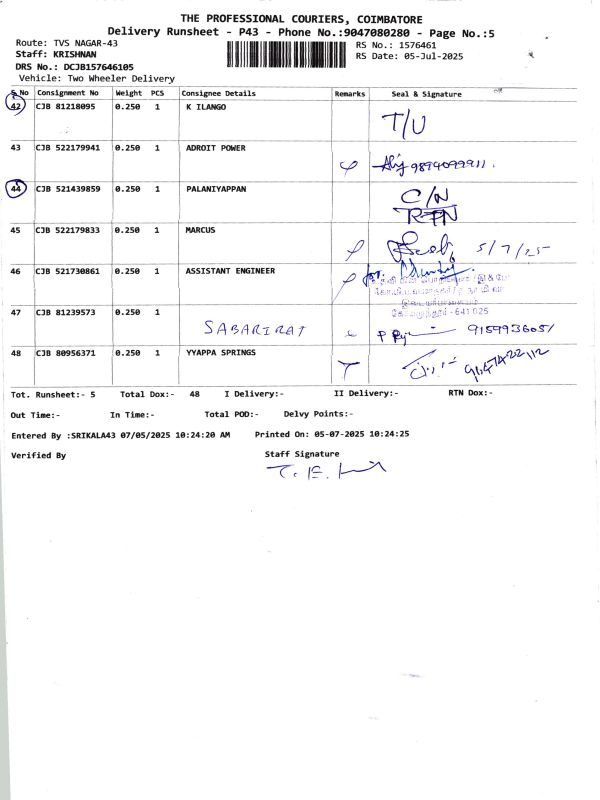 THE PROFESSIONAL COURIERS, COIMBATORE
Delivery Runsheet - P43 - Phone No.:9047080280 - Page No.:5
Route: TVS NAGAR-43
Staff: KRISHNAN
DRS No.: DCJB157646105
Vehicle: Two Wheeler Delivery
RS No.: 1576461
RS Date: 05-Jul-2025
S.No Consignment No Weight PCS Consignee Details Remarks Seal & Signature
42 CJB 81218095 0.250 1 K ILANGO T/U
43 CJB 522179941 0.250 1 ADROIT POWER 9894099911.
44 CJB 521439859 0.250 1 PALANIYAPPAN C/N
RTN
45 CJB 522179833 0.250 1 MARCUS 5/7/25
46 CJB 521730861 0.250 1 ASSISTANT ENGINEER
கோயமுத்தூர் - 641 025
47 CJB 81239573 0.250 1 SABARIRAT 9159936051
48 CJB 80956371 0.250 1 YYAPPA SPRINGS
Tot. Runsheet:- 5 Total Dox:- 48 I Delivery:- II Delivery:- RTN Dox:-
Out Time:- In Time:- Total POD:- Delvy Points:-
Entered By :SRIKALA43 07/05/2025 10:24:20 AM Printed On: 05-07-2025 10:24:25
Verified By Staff Signature